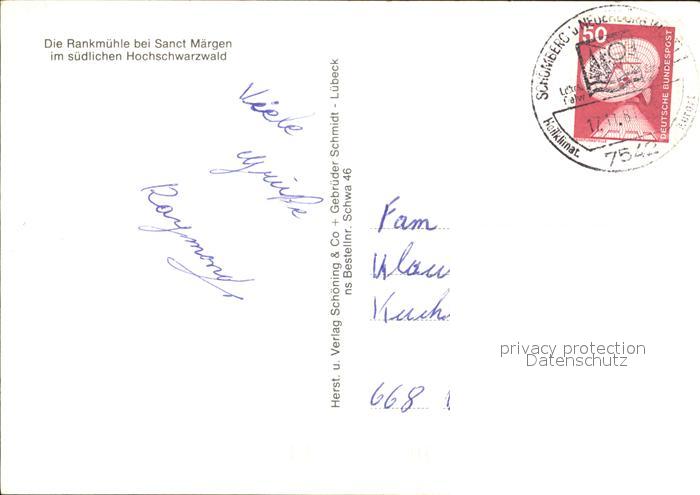 Die Rankmühle bei Sanct Märgen
im südlichen Hochschwarzwald
Viele
Grüße
Raymond
Herst. u. Verlag Schöning & Co + Gebrüder Schmidt - Lübeck
ns Bestellnr. Schwa 46
SCHÖMBERG
50
DEUTSCHE BUNDESPOST
Heilklimat.
17.11.8
7542
Kurort
Fam
Klau
Kuch
668
privacy protection
Datenschutz